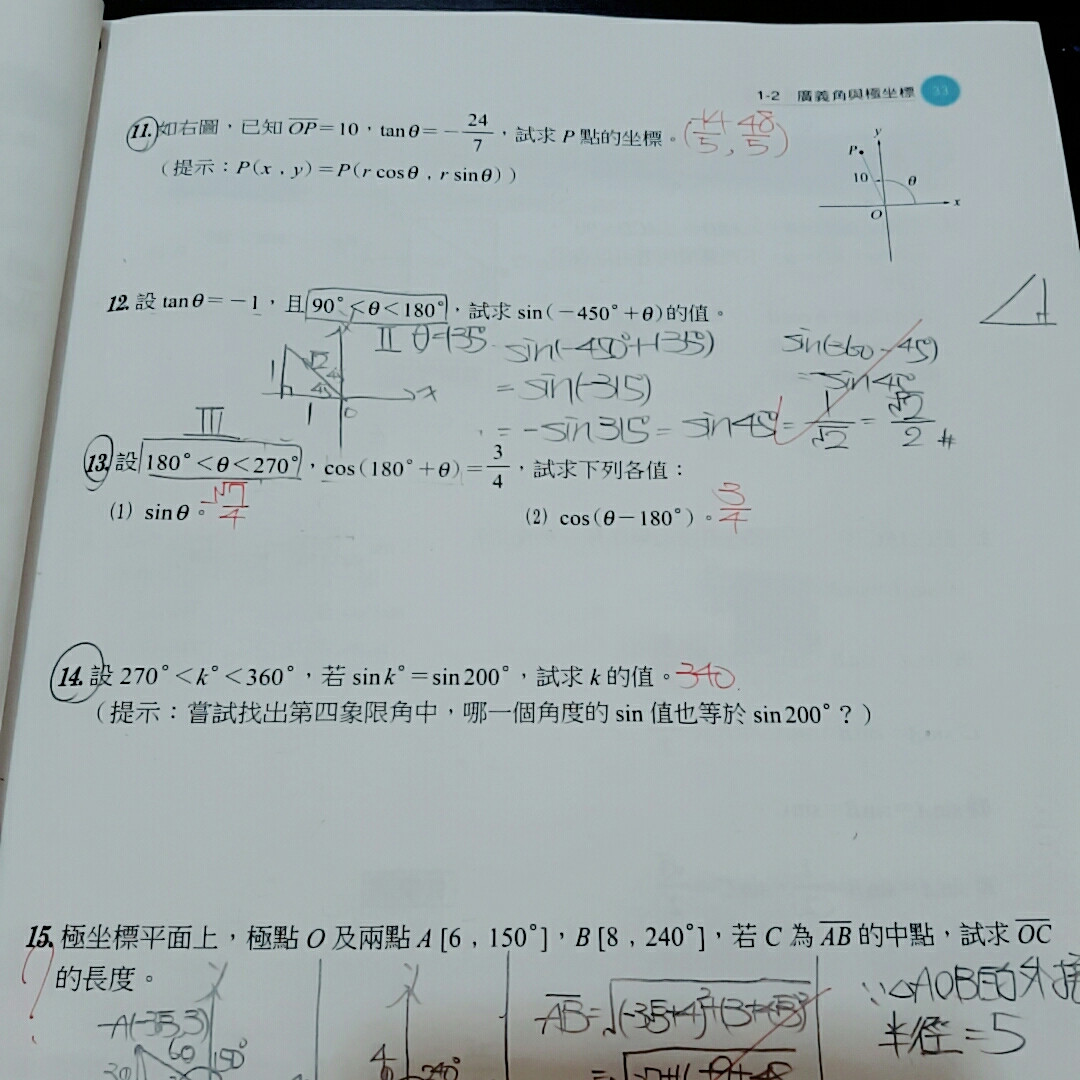 1-2 廣義角與極坐標 33
11. 如右圖，已知 OP=10，tanθ=-24/7，試求 P 點的坐標。(-14/5, 48/5)
(提示：P(x，y)=P(r cosθ，r sinθ))
y
P
10 θ
x
O
12. 設 tanθ=-1，且 90°<θ<180°，試求 sin(-450°+θ)的值。
II θ=135°
sin(-450°+135°)
= sin(-315)
= -sin315° = sin45° = 1/√2 = √2/2 #
sin(-360-45)
= -sin45°
1 √2 45
1 0 x
III
13. 設 180°<θ<270°，cos(180°+θ)=3/4，試求下列各值：
(1) sinθ。-√7/4
(2) cos(θ-180°)。3/4
14. 設 270°<k°<360°，若 sin k°=sin 200°，試求 k 的值。340
(提示：嘗試找出第四象限角中，哪一個角度的 sin 值也等於 sin 200°？)
15. 極坐標平面上，極點 O 及兩點 A [6，150°]，B [8，240°]，若 C 為 AB 的中點，試求 OC
的長度。
A(-3√3,3)
60 150°
4 240°
AB=√(-3√3+4)²+(3+4√3)²
∵△AOB的外接
半徑=5